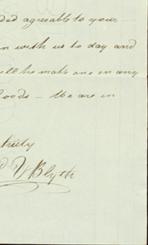 ded agreable to your
n with us to day and
ill he make one in any
oods — We are in
truly
Blyth